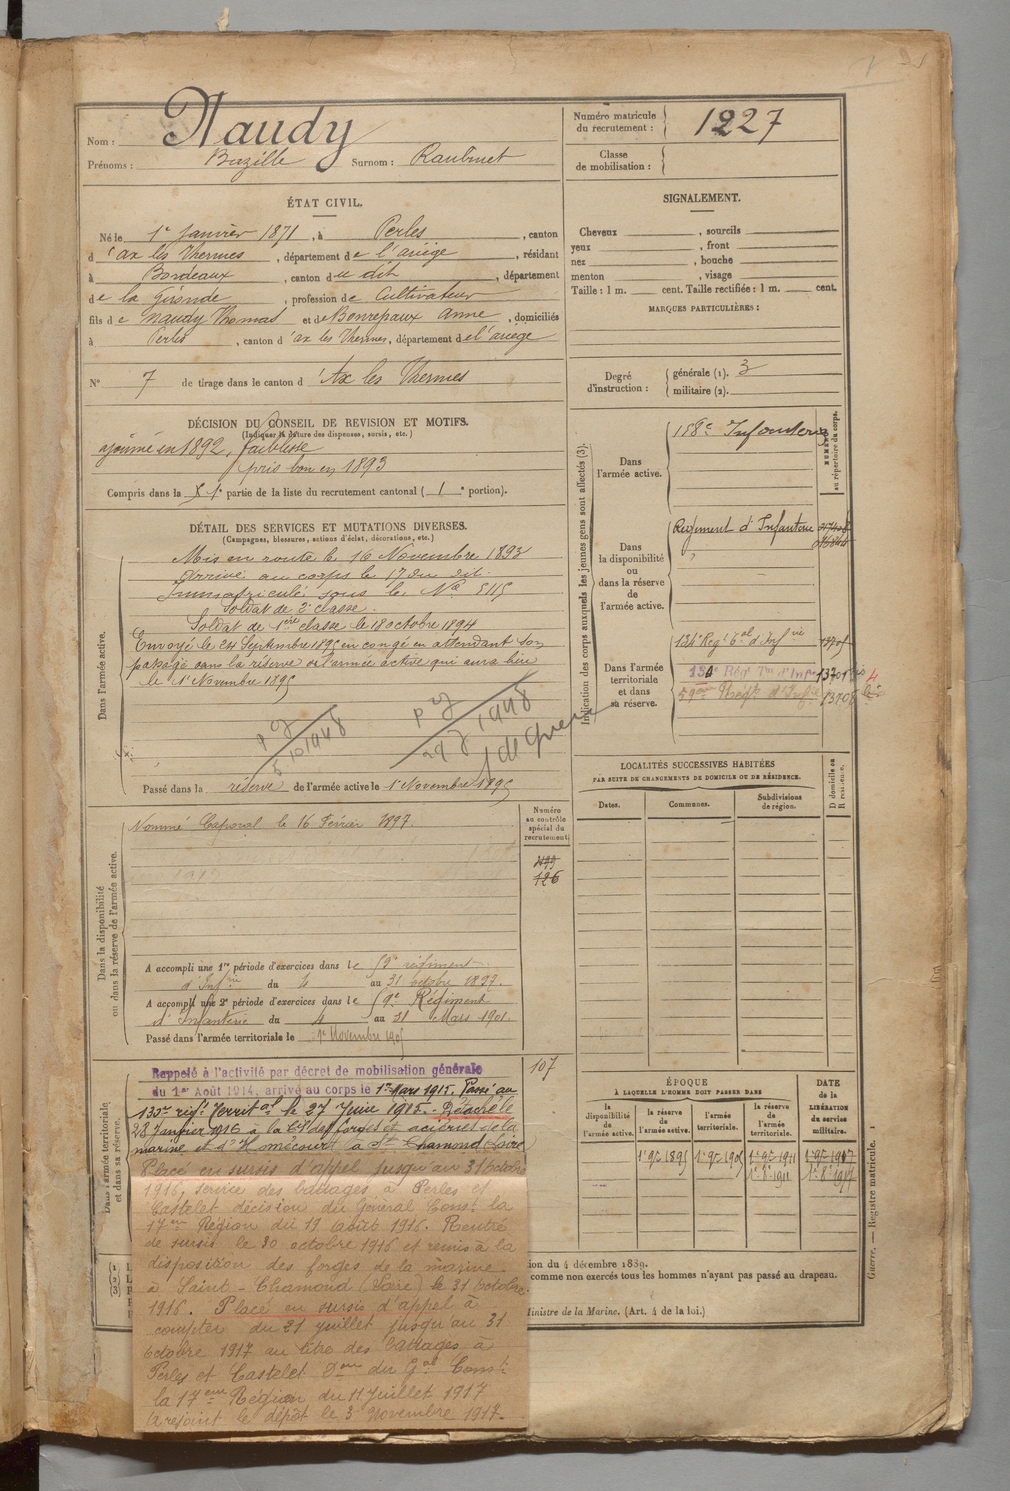 Nom : Naudy
Prénoms : Bazille Surnom : Raubinet
Numéro matricule du recrutement : 1227
Classe de mobilisation :
ÉTAT CIVIL.
Né le 1er Janvier 1871, à Perles, canton
d'ax les Thermes, département de l'ariège, résidant
à Bordeaux, canton du dit, département
de la Gironde, profession de Cultivateur
fils de Naudy Thomas et de Bonrepaux Anne, domiciliés
à Perles, canton d'ax les Thermes, département de l'ariège
N° 7 de tirage dans le canton d'Ax les Thermes
SIGNALEMENT.
Cheveux , sourcils
yeux , front
nez , bouche
menton , visage
Taille : 1 m. cent. Taille rectifiée : 1 m. cent.
MARQUES PARTICULIÈRES :
Degré d'instruction :
générale (1). 3
militaire (2).
DÉCISION DU CONSEIL DE REVISION ET MOTIFS.
(Indiquer la nature des dispenses, sursis, etc.)
ajourné en 1892, faiblesse
pris bon en 1893
Compris dans la 1e partie de la liste du recrutement cantonal (1e portion).
DÉTAIL DES SERVICES ET MUTATIONS DIVERSES.
(Campagnes, blessures, actions d'éclat, décorations, etc.)
Dans l'armée active.
Mis en route le 16 Novembre 1893
arrivé au corps le 17 du dit
Immatriculé sous le No 5115
Soldat de 2e classe.
Soldat de 1ère classe le 18 octobre 1894
Envoyé le 24 Septembre 1895 en congé en attendant son
passage dans la réserve de l'armée active qui aura lieu
le 1er Novembre 1895
1948
1948
Passé dans la réserve de l'armée active le 1er Novembre 1895
Indication des corps auxquels les jeunes gens sont affectés (3).
NUMÉRO au répertoire du corps.
Dans l'armée active.
Infanterie
Dans la disponibilité ou dans la réserve de l'armée active.
Régiment d'Infanterie
Dans l'armée territoriale et dans sa réserve.
134e Régt tal d'Infrie
134e Rég Ter d'Infie 13701 bis
59ème Régt d'Infie
LOCALITÉS SUCCESSIVES HABITÉES
PAR SUITE DE CHANGEMENTS DE DOMICILE OU DE RÉSIDENCE.
Dates. Communes. Subdivisions de région.
D domicile ou R résidence.
Dans la disponibilité ou dans la réserve de l'armée active.
Numéro au contrôle spécial du recrutement
126
Nommé Caporal le 16 Février 1897.
A accompli une 1re période d'exercices dans le régiment
d'Infrie du 4 au 31 octobre 1899.
A accompli une 2e période d'exercices dans le Régiment
d'Infanterie du 4 au 31 Mars 1901.
Passé dans l'armée territoriale le 1er Novembre 1905
107
Dans l'armée territoriale et dans sa réserve.
Rappelé à l'activité par décret de mobilisation générale
du 1er Août 1914, arrivé au corps le 1er Mars 1915. Passé au
133e régt territal le 27 Juin 1915. Détaché le
28 Janvier 1916 à la Cie des forges et aciéries de la
marine et d'Homécourt à St Chamond Loire
Placé en sursis d'appel jusqu'au 31 octobre
1916, service des battages à Perles et
Castelet décision du Général Comt la
17me Région du 19 août 1916. Rentré
de sursis le 30 octobre 1916 et remis à la
disposition des forges de la marine
à Saint-Chamond (Loire) le 31 octobre
1916. Placé en sursis d'appel à
compter du 21 juillet jusqu'au 31
octobre 1917 au titre des battages à
Perles et Castelet Don du Gal Comt
la 17eme Région du 11 Juillet 1917
a rejoint le dépôt le 3 Novembre 1917.
ÉPOQUE
À LAQUELLE L'HOMME DOIT PASSER DANS
la disponibilité de l'armée active.
la réserve de l'armée active.
l'armée territoriale.
la réserve de l'armée territoriale.
DATE de la LIBÉRATION du service militaire.
1er 9bre 1895 1er 9bre 1905 1er 9bre 1911 1er 9bre 1917
1er 8bre 1911
tion du 4 décembre 1889.
comme non exercés tous les hommes n'ayant pas passé au drapeau.
Ministre de la Marine. (Art. 4 de la loi.)
Guerre. — Registre matricule. 1